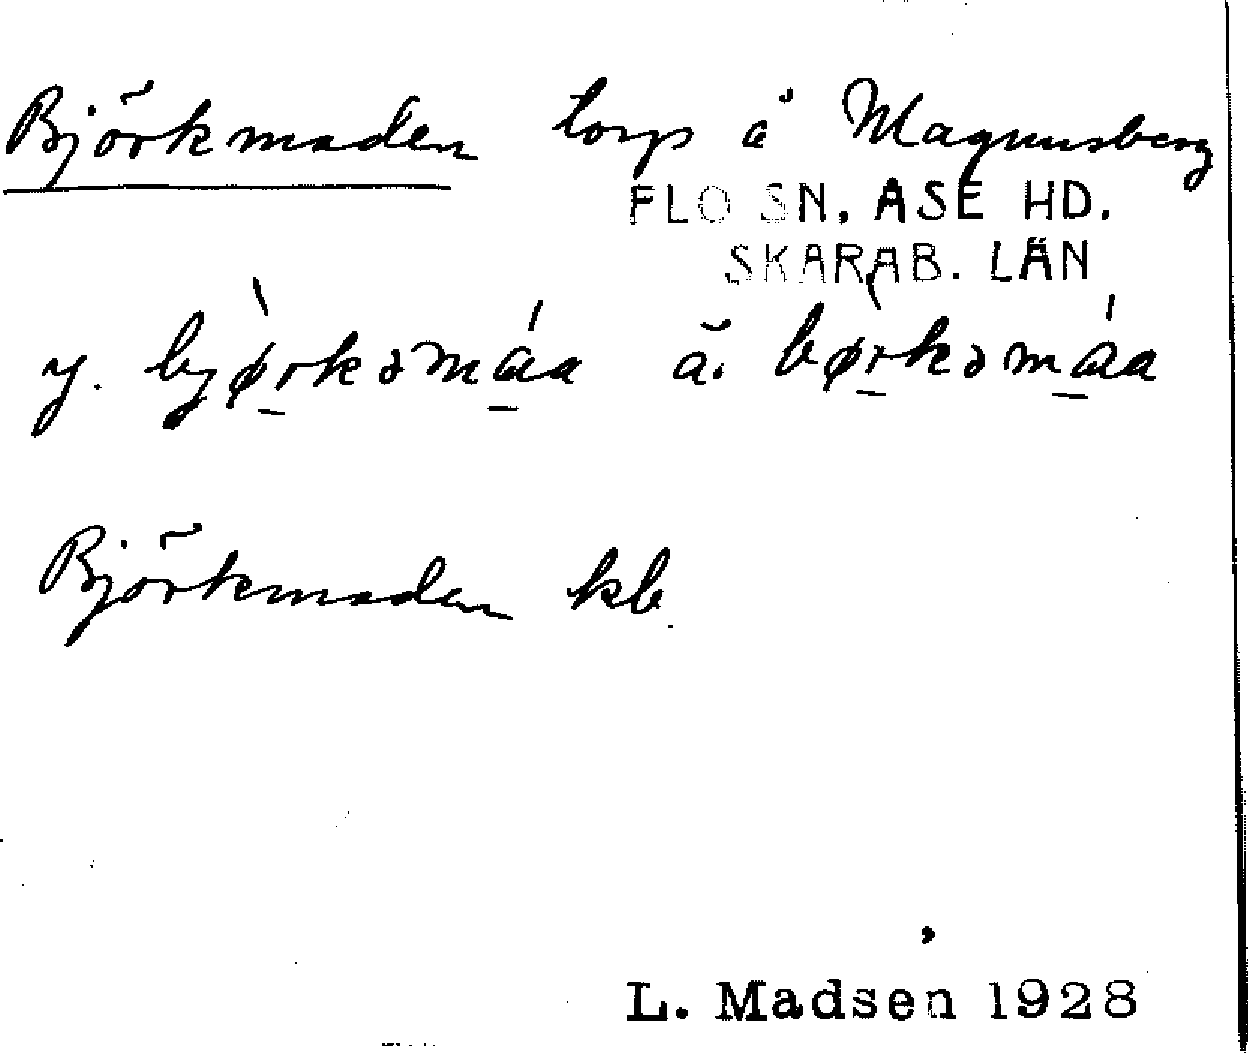 Björkmaden torp å Magnusberg
FLO SN. ÅSE HD.
SKARAB. LÄN
y. bjø̀rkəmáa ä. bø̀rkəmáa
Björkmaden kb
L. Madsen 1928